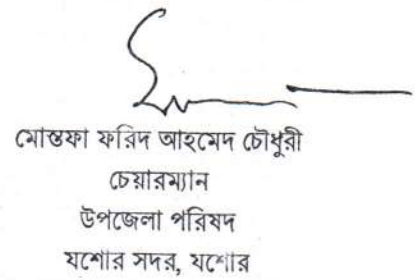 মোস্তফা ফরিদ আহমেদ চৌধুরী
চেয়ারম্যান
উপজেলা পরিষদ
যশোর সদর, যশোর